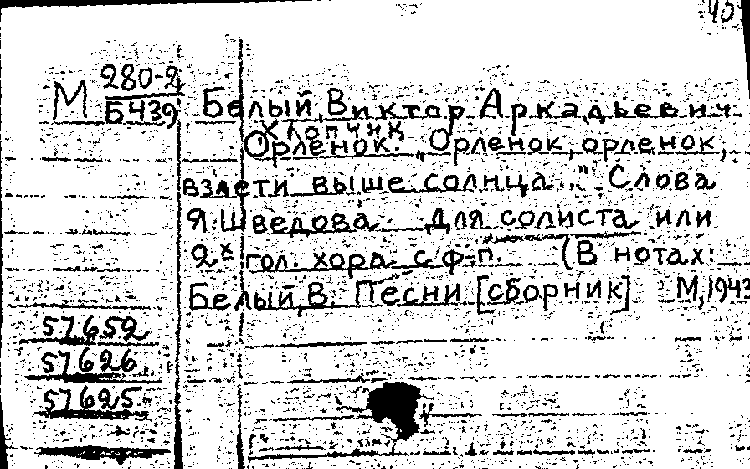 45
М 280-2
Б439
Белый, Виктор Аркадьевич
Хлопчик
Орленок. "Орленок, орленок,
взлети выше солнца..." Слова
Я. Шведова. Для солиста или
2х гол. хора с ф-п. (В нотах:
Белый, В. Песни [сборник] М, 1943
57652
57626
57625